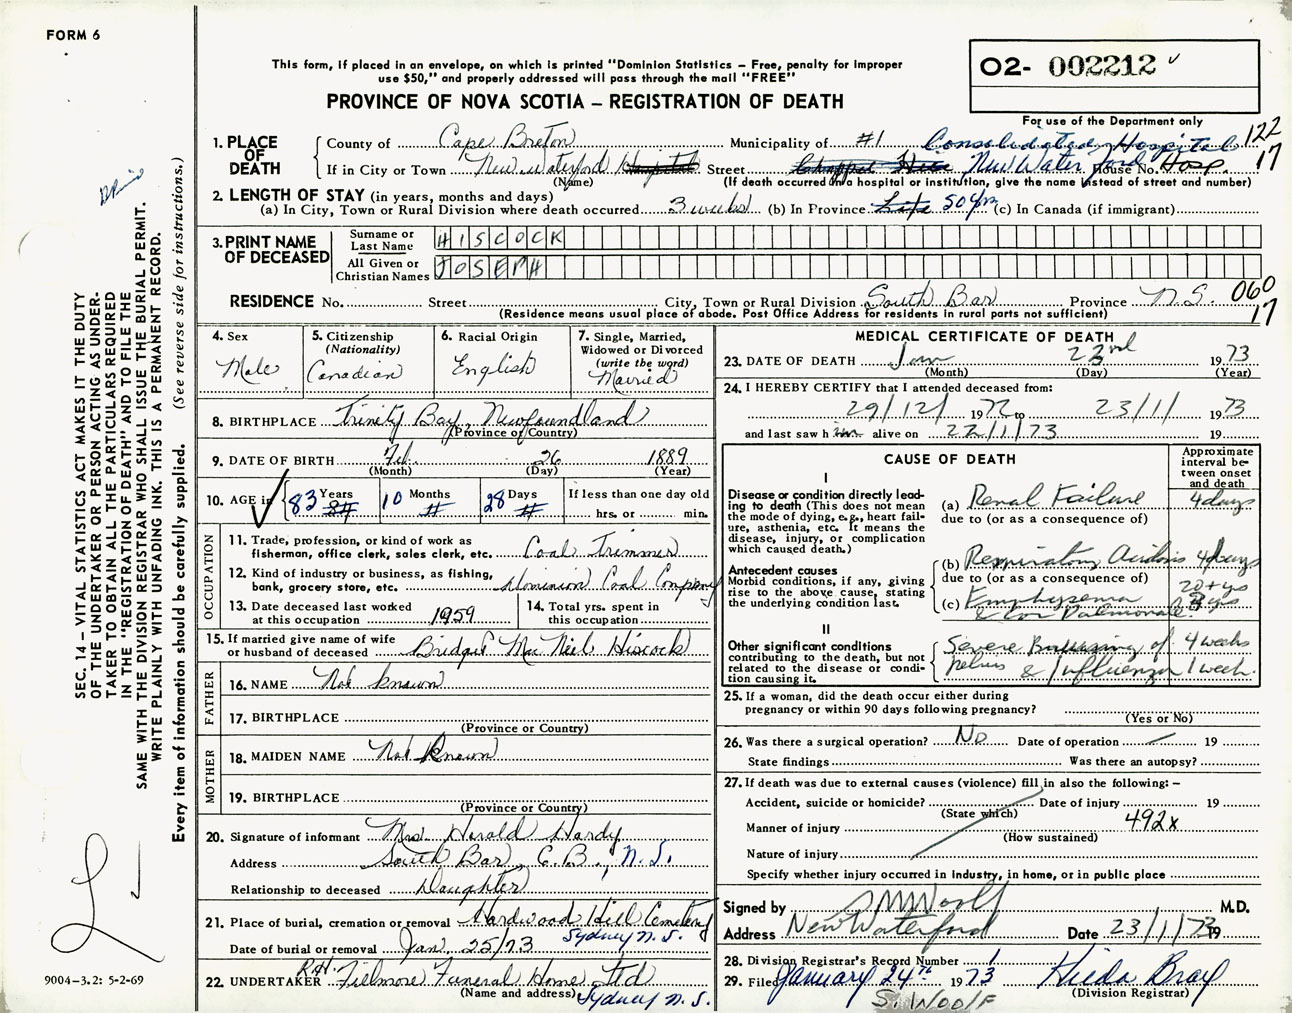 FORM 6
This form, if placed in an envelope, on which is printed "Dominion Statistics – Free, penalty for improper
use $50," and properly addressed will pass through the mail "FREE"
O2- 002212
PROVINCE OF NOVA SCOTIA – REGISTRATION OF DEATH
For use of the Department only
1. PLACE OF DEATH
County of Cape Breton Municipality of #1 Consolidated Hospital 122
If in City or Town New Waterford Hospital Street New Waterford House No. Hosp. 17
(Name) (If death occurred in a hospital or institution, give the name instead of street and number)
2. LENGTH OF STAY (in years, months and days)
(a) In City, Town or Rural Division where death occurred 3 weeks (b) In Province Life 50 yrs (c) In Canada (if immigrant)
3. PRINT NAME OF DECEASED
Surname or Last Name HISCOCK
All Given or Christian Names JOSEPH
RESIDENCE No. Street City, Town or Rural Division South Bar Province N.S. 060
(Residence means usual place of abode. Post Office Address for residents in rural parts not sufficient) 17
4. Sex
Male
5. Citizenship
(Nationality)
Canadian
6. Racial Origin
English
7. Single, Married,
Widowed or Divorced
(write the word)
Married
8. BIRTHPLACE Trinity Bay, Newfoundland
(Province or Country)
9. DATE OF BIRTH Feb. 26 1889
(Month) (Day) (Year)
10. AGE in 83 Years 84 10 Months 28 Days If less than one day old
hrs. or min.
OCCUPATION
11. Trade, profession, or kind of work as
fisherman, office clerk, sales clerk, etc. Coal Trimmer
12. Kind of industry or business, as fishing,
bank, grocery store, etc. Dominion Coal Company
13. Date deceased last worked
at this occupation 1959
14. Total yrs. spent in
this occupation
15. If married give name of wife
or husband of deceased Bridget MacNeil Hiscock
FATHER
16. NAME Not known
17. BIRTHPLACE
(Province or Country)
MOTHER
18. MAIDEN NAME Not Known
19. BIRTHPLACE
(Province or Country)
20. Signature of informant Mrs Harold Hardy
Address South Bar, C.B., N.S.
Relationship to deceased Daughter
21. Place of burial, cremation or removal Hardwood Hill Cemetery
Date of burial or removal Jan. 25/73 Sydney N.S.
22. UNDERTAKER R.H. Fillmore Funeral Home Ltd
(Name and address) Sydney N.S.
MEDICAL CERTIFICATE OF DEATH
23. DATE OF DEATH Jan 22nd 1973
(Month) (Day) (Year)
24. I HEREBY CERTIFY that I attended deceased from:
29/12/ 1972 to 23/1/ 1973
and last saw him alive on 22/1/73 19
CAUSE OF DEATH
Approximate
interval be-
tween onset
and death
I
Disease or condition directly lead-
ing to death (This does not mean
the mode of dying, e.g., heart fail-
ure, asthenia, etc. It means the
disease, injury, or complication
which caused death.)
(a) Renal Failure 4 days
due to (or as a consequence of)
Antecedent causes
Morbid conditions, if any, giving
rise to the above cause, stating
the underlying condition last.
(b) Respiratory Acidosis 4 days
due to (or as a consequence of)
(c) Emphysema 20+ yrs
& Cor Pulmonale
II
Other significant conditions
contributing to the death, but not
related to the disease or condi-
tion causing it.
Severe Bruising of 4 weeks
Pelvis & Influenza 1 week
25. If a woman, did the death occur either during
pregnancy or within 90 days following pregnancy?
(Yes or No)
26. Was there a surgical operation? No Date of operation 19
State findings Was there an autopsy?
27. If death was due to external causes (violence) fill in also the following: –
Accident, suicide or homicide? Date of injury 19
(State which)
Manner of injury 492x
(How sustained)
Nature of injury
Specify whether injury occurred in industry, in home, or in public place
Signed by S M Woolf M.D.
Address New Waterford Date 23/1/73 19
28. Division Registrar's Record Number 1
29. Filed January 24th 1973 Hilda Bray
(Division Registrar)
S. WOOLF
SEC. 14 – VITAL STATISTICS ACT MAKES IT THE DUTY
OF THE UNDERTAKER OR PERSON ACTING AS UNDER-
TAKER TO OBTAIN ALL THE PARTICULARS REQUIRED
IN THE "REGISTRATION OF DEATH" AND TO FILE THE
SAME WITH THE DIVISION REGISTRAR WHO SHALL ISSUE THE BURIAL PERMIT.
WRITE PLAINLY WITH UNFADING INK. THIS IS A PERMANENT RECORD.
Every item of information should be carefully supplied. (See reverse side for instructions.)
9004–3.2: 5-2-69